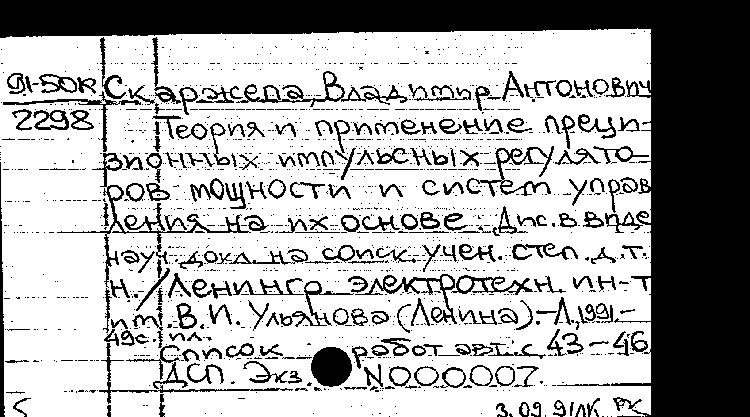 Д1-50К Скаржепа, Владимир Антонович
2298
Теория и применение преци-
зионных импульсных регулято-
ров мощности и систем управ
ления на их основе: Дис. в виде
науч. докл. на соиск. учен. степ. д.т.
н. / Ленингр. электротехн. ин-т
им. В.И. Ульянова (Ленина).-Л., 1991.-
49с. ил.
Список работ авт. с. 43-46
ДСП. Экз. N000007.
3.09.91